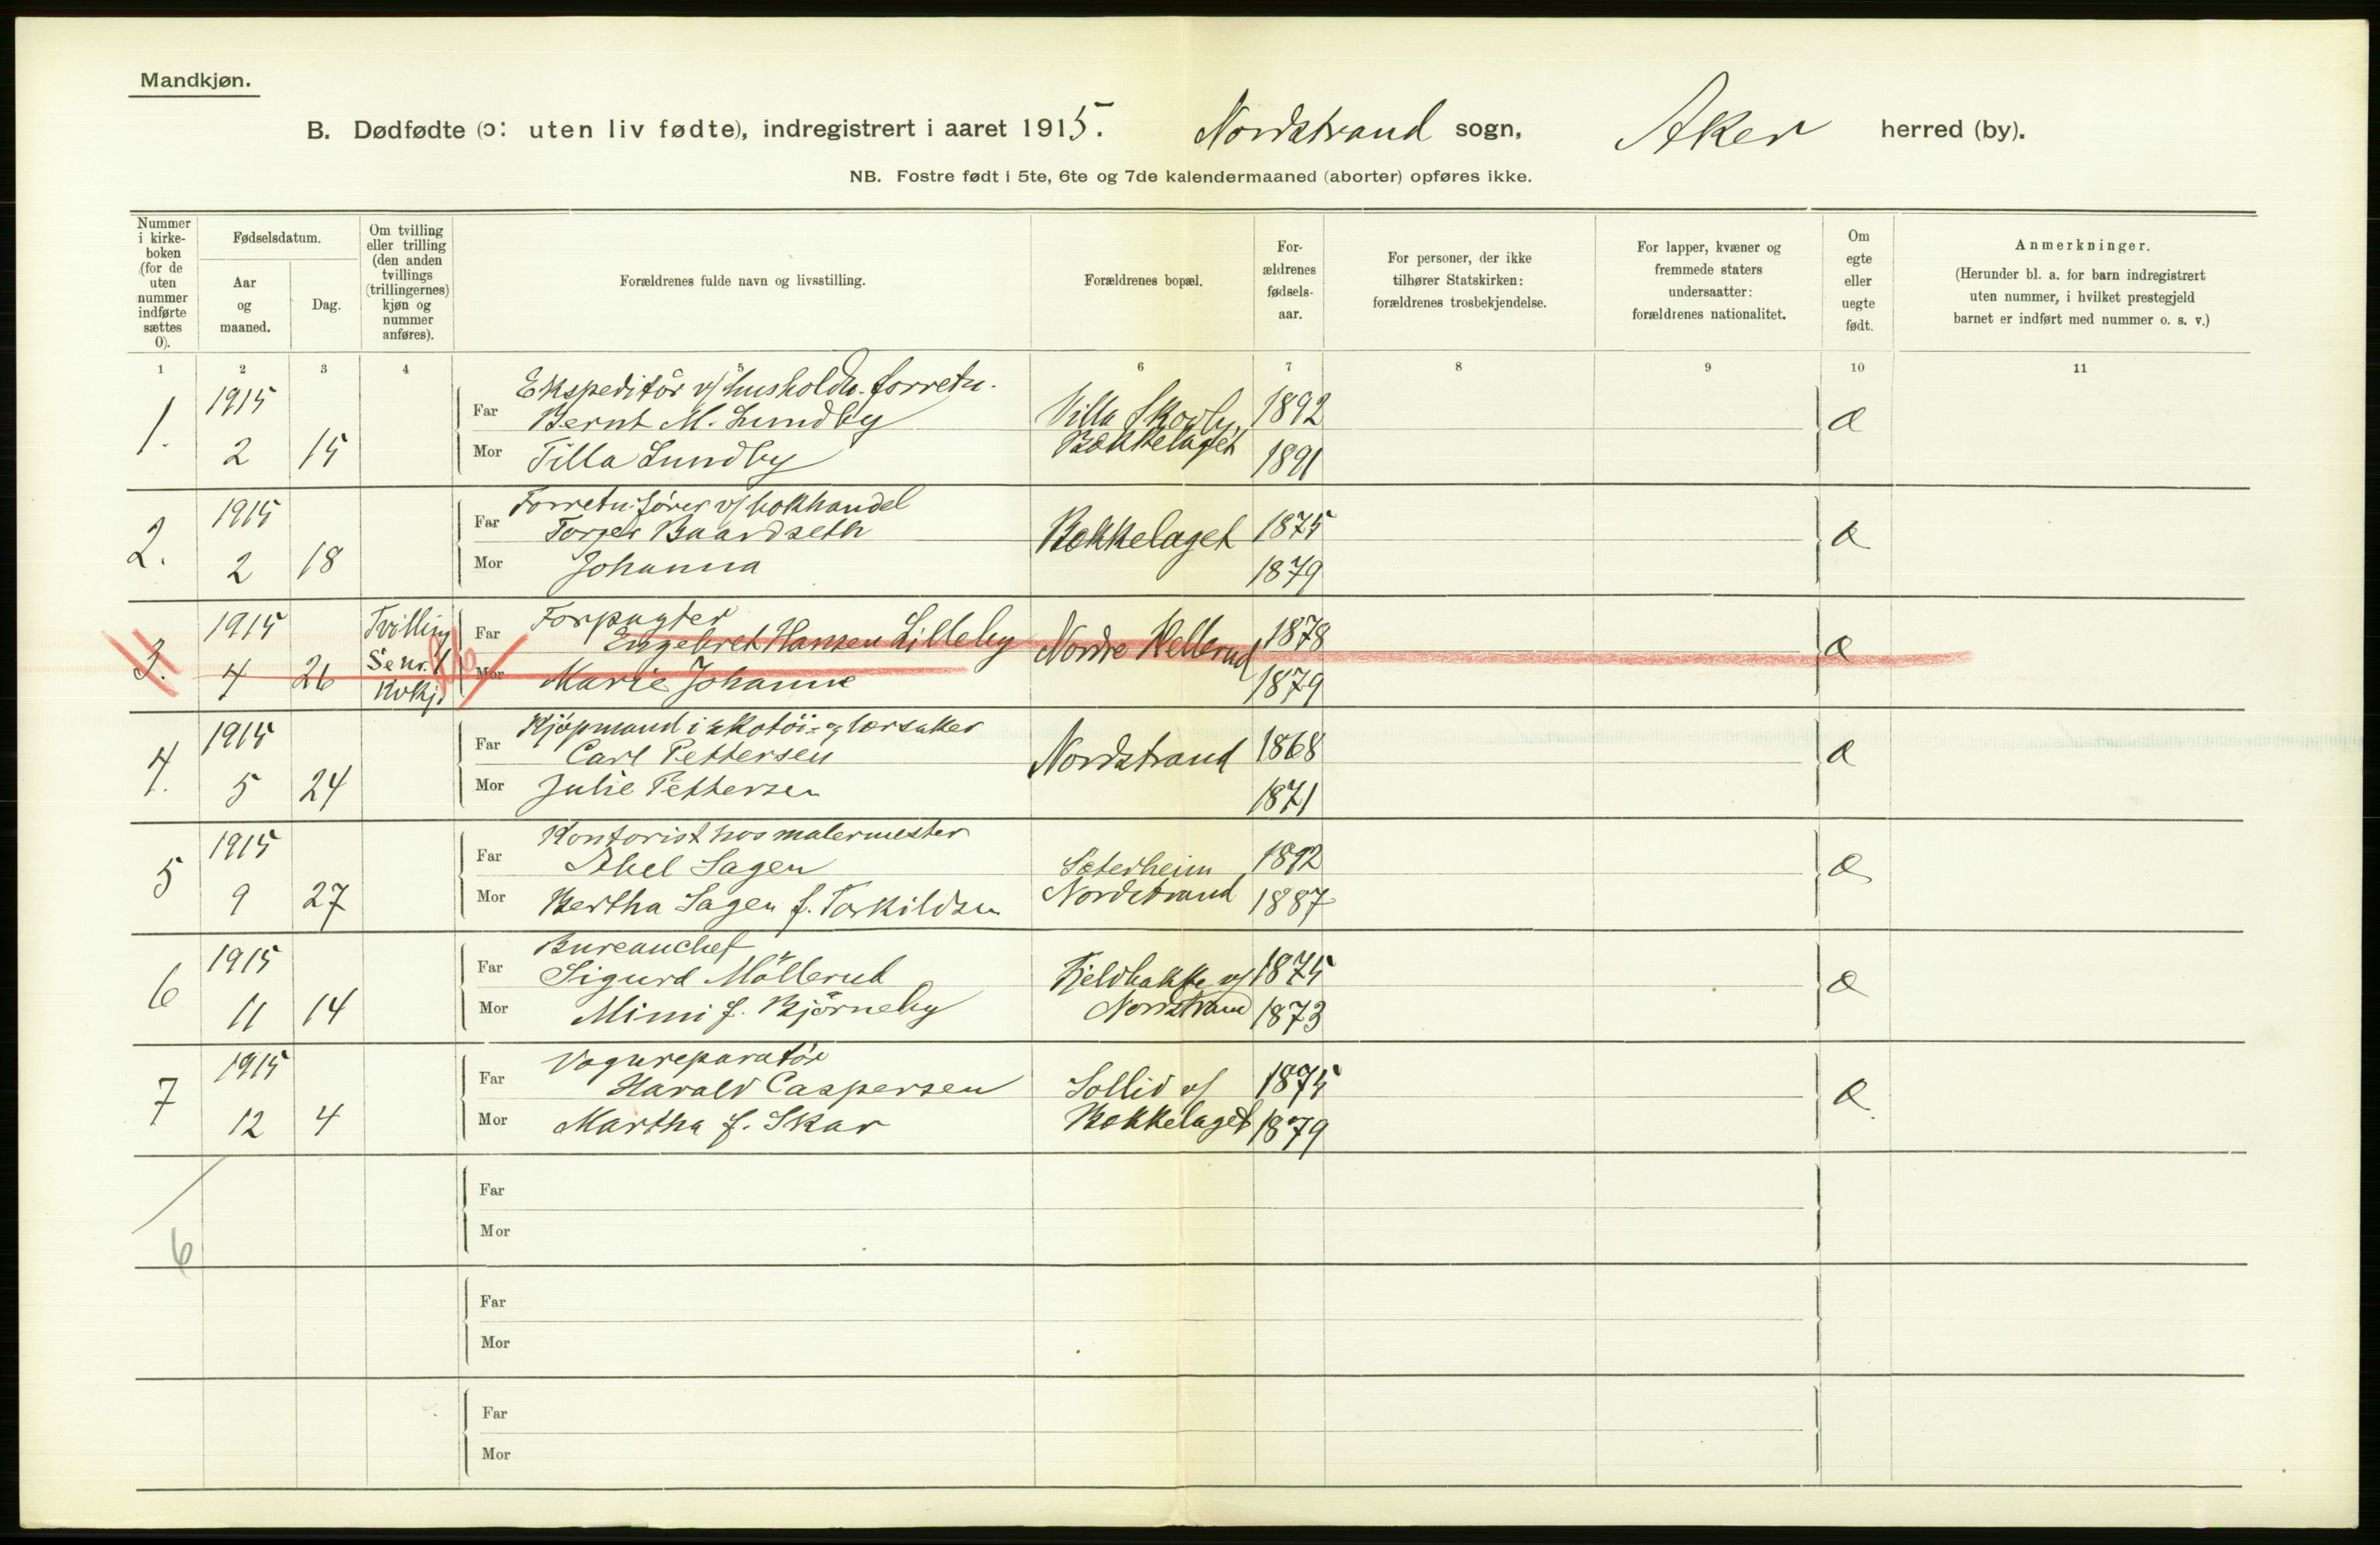 Mandkjøn.
B. Dødfødte (ɔ: uten liv fødte), indregistrert i aaret 1915. Nordstrand sogn, Aker herred (by).
NB. Fostre født i 5te, 6te og 7de kalendermaaned (aborter) opføres ikke.
Nummer i kirke-boken (for de uten nummer indførte sættes 0).
Fødselsdatum.
Aar og maaned.
Dag.
Om tvilling eller trilling (den anden tvillings (trillingernes) kjøn og nummer anføres).
Forældrenes fulde navn og livsstilling.
Forældrenes bopæl.
For-ældrenes fødsels-aar.
For personer, der ikke tilhører Statskirken: forældrenes trosbekjendelse.
For lapper, kvæner og fremmede staters undersaatter: forældrenes nationalitet.
Om egte eller uegte født.
Anmerkninger.
(Herunder bl. a. for barn indregistrert uten nummer, i hvilket prestegjeld barnet er indført med nummer o. s. v.)
1 2 3 4 5 6 7 8 9 10 11
Ekspeditör v/ husholdn. forretn.
1. 1915 Far Bernt M. Lundby Villa Skovly, 1892 æ
2 15 Mor Tilla Lundby Bækkelaget 1891
Forretn.fører v/ bokhandel
2. 1915 Far Torger Baardseth Bækkelaget 1875 æ
2 18 Mor Johanna 1879
Forpagter
3. 1915 Tvilling Far Engebret Hansen Lilleby Nordre Hellerud 1878 æ
4 26 Se nr. 1 Kvkj. Mor Marie Johanne 1879
Kjøpmand i skotöi- og lærsaker
4. 1915 Far Carl Pettersen Nordstrand 1868 æ
5 24 Mor Julie Pettersen 1871
Kontorist hos malermester
5 1915 Far Abel Sagen Sæterheim 1892 æ
9 27 Mor Bertha Sagen f. Torkildsen Nordstrand 1887
Bureauchef
6 1915 Far Sigurd Möllerud Fjeldbakke v/ 1875 æ
11 14 Mor Mimi f. Björneby Nordstrand 1873
Vognreparatör
7 1915 Far Harald Caspersen Sollid v/ 1875 æ
12 4 Mor Martha f. Skar Bækkelaget 1879
Far
Mor
6
Far
Mor
Far
Mor